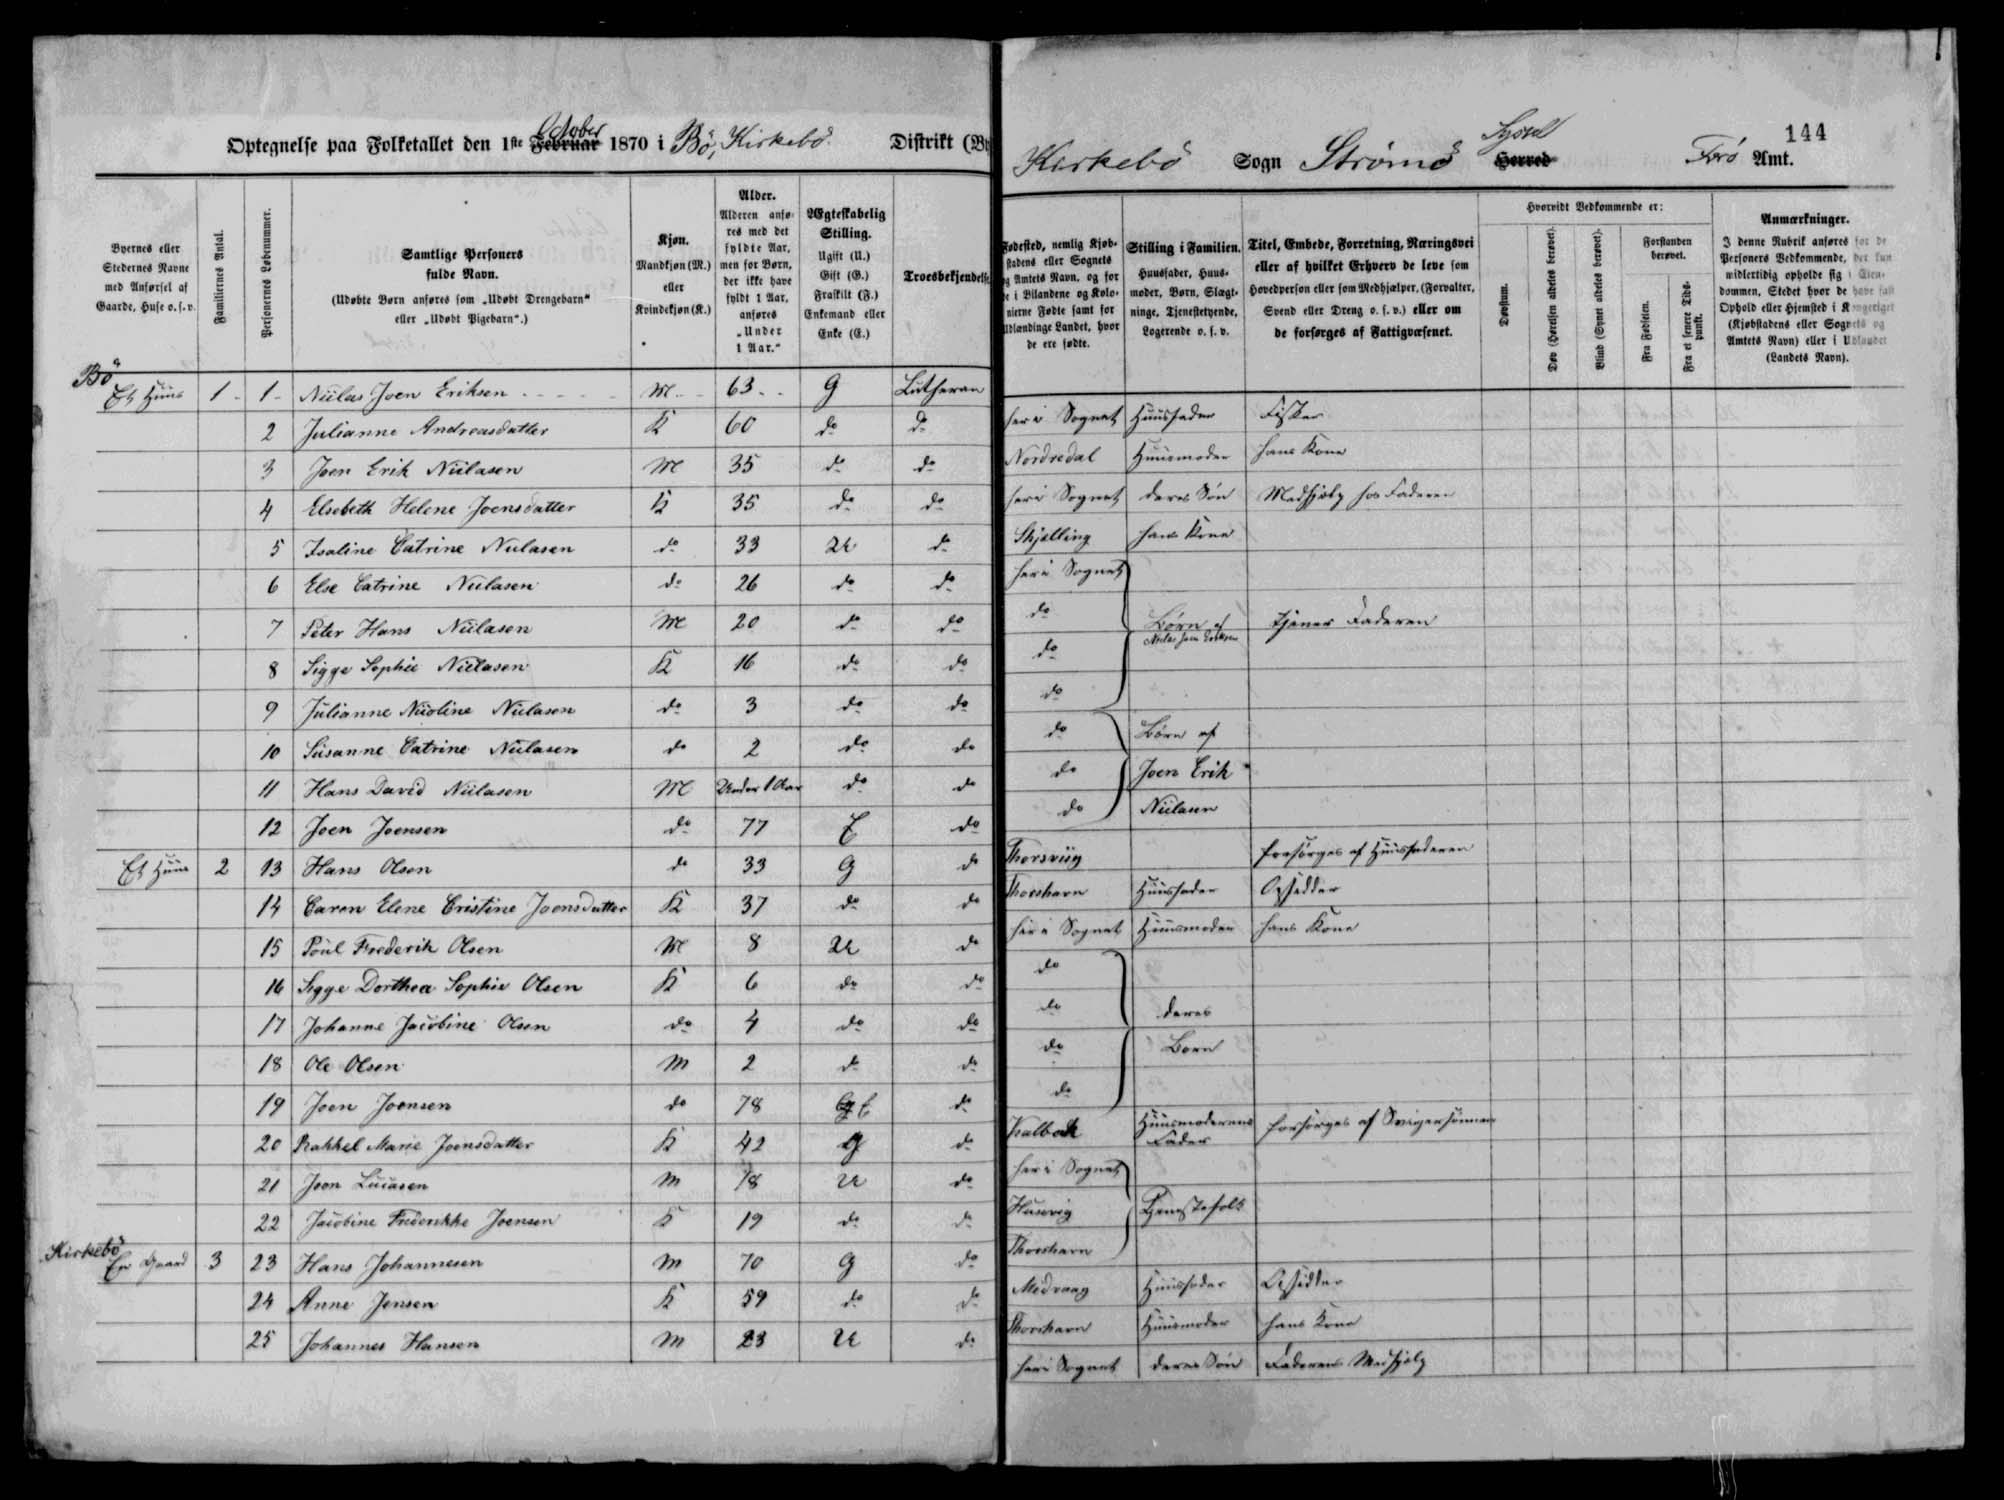 144
Optegnelse paa Folketallet den 1ste Februar October 1870 i Bö, Kirkebö. Distrikt (By
Kirkebö Sogn Strømö Herred Syssel Færø Amt.
Byernes eller Stedernes Navne med Anførsel af Gaarde, Huse o. s. v.
Familiernes Antal.
Personernes Løbenummer.
Samtlige Personers fulde Navn.
(Udøbte Børn anføres som „Udøbt Drengebarn“ eller „Udøbt Pigebarn“.)
Kjøn. Mandkjøn (M.) eller Kvindekjøn (K.)
Alder. Alderen anføres med det fyldte Aar, men for Børn, der ikke have fyldt 1 Aar, anføres „Under 1 Aar.“
Ægteskabelig Stilling. Ugift (U.) Gift (G.) Fraskilt (F.) Enkemand eller Enke (E.)
Troesbekjendelse
Fødested, nemlig Kjøbstadens eller Sognets og Amtets Navn, og for de i Bilandene og Kolonierne Fødte samt for Udlændinge Landet, hvor de ere fødte.
Stilling i Familien. Huusfader, Huusmoder, Børn, Slægtninge, Tjenestetyende, Logerende o. s. v.
Titel, Embede, Forretning, Næringsvei eller af hvilket Erhverv de leve som Hovedperson eller som Medhjælper, (Forvalter, Svend eller Dreng o. s. v.) eller om de forsørges af Fattigvæsenet.
Hvorvidt Vedkommende er:
Døvstum.
Døv (Hørelsen aldeles berøvet).
Blind (Synet aldeles berøvet).
Forstanden berøvet.
Fra Fødselen.
Fra et senere Tidspunkt.
Anmærkninger.
I denne Rubrik anføres for de Personers Vedkommende, der kun midlertidig opholde sig i Eiendommen, Stedet hvor de have fast Ophold eller Hjemsted i Kongeriget (Kjøbstadens eller Sognets og Amtets Navn) eller i Udlandet (Landets Navn).
Bö
Et Huus 1 1 Niilas Joen Eriksen M 63 G Lutheran her i Sognet Huusfader Fisker
2 Julianne Andreasdatter K 60 do do Nordredal Huusmoder hans Kone
3 Joen Erik Niilasen M 35 do do her i Sognet deres Søn Medhjelp hos Faderen
4 Elsebeth Helene Joensdatter K 35 do do Skjælling hans Kone
5 Isaline Catrine Niilasen do 33 U do her i Sognet
6 Else Catrine Niilasen do 26 do do do
7 Peter Hans Niilasen M 20 do do do Børn af Niilas Joen Eriksen tjener Faderen
8 Sigge Sophie Niilasen K 16 do do do
9 Julianne Niioline Niilasen do 3 do do do Børn af
10 Susanne Catrine Niilasen do 2 do do do Joen Erik
11 Hans David Niilasen M Under 1 Aar do do do Niilasen
12 Joen Joensen do 77 E do Thorsviig forsørges af Huusfaderen
Et Huus 2 13 Hans Olsen do 33 G do Thorshavn Huusfader Opsidder
14 Caren Elene Cristine Joensdatter K 37 do do her i Sognet Huusmoder hans Kone
15 Poul Frederik Olsen M 8 U do do
16 Sigge Dorthea Sophie Olsen K 6 do do do deres
17 Johanne Jacobine Olsen do 4 do do do Børn
18 Ole Olsen M 2 do do do
19 Joen Joensen do 78 E do Kalbak Huusmoderens Fader forsørges af Svigersønnen
20 Rakkel Marie Joensdatter K 42 G do her i Sognet
21 Joen Lucasen M 18 U do Husevig Tjenestefolk
22 Jacobine Frederikke Joensen K 19 do do Thorshavn
Kirkebö
En Gaard 3 23 Hans Johannesen M 70 G do Midvaag Huusfader Opsidder
24 Anne Jensen K 59 do do Thorshavn Huusmoder hans Kone
25 Johannes Hansen M 23 U do her i Sognet deres Søn Faderens Medhjelp